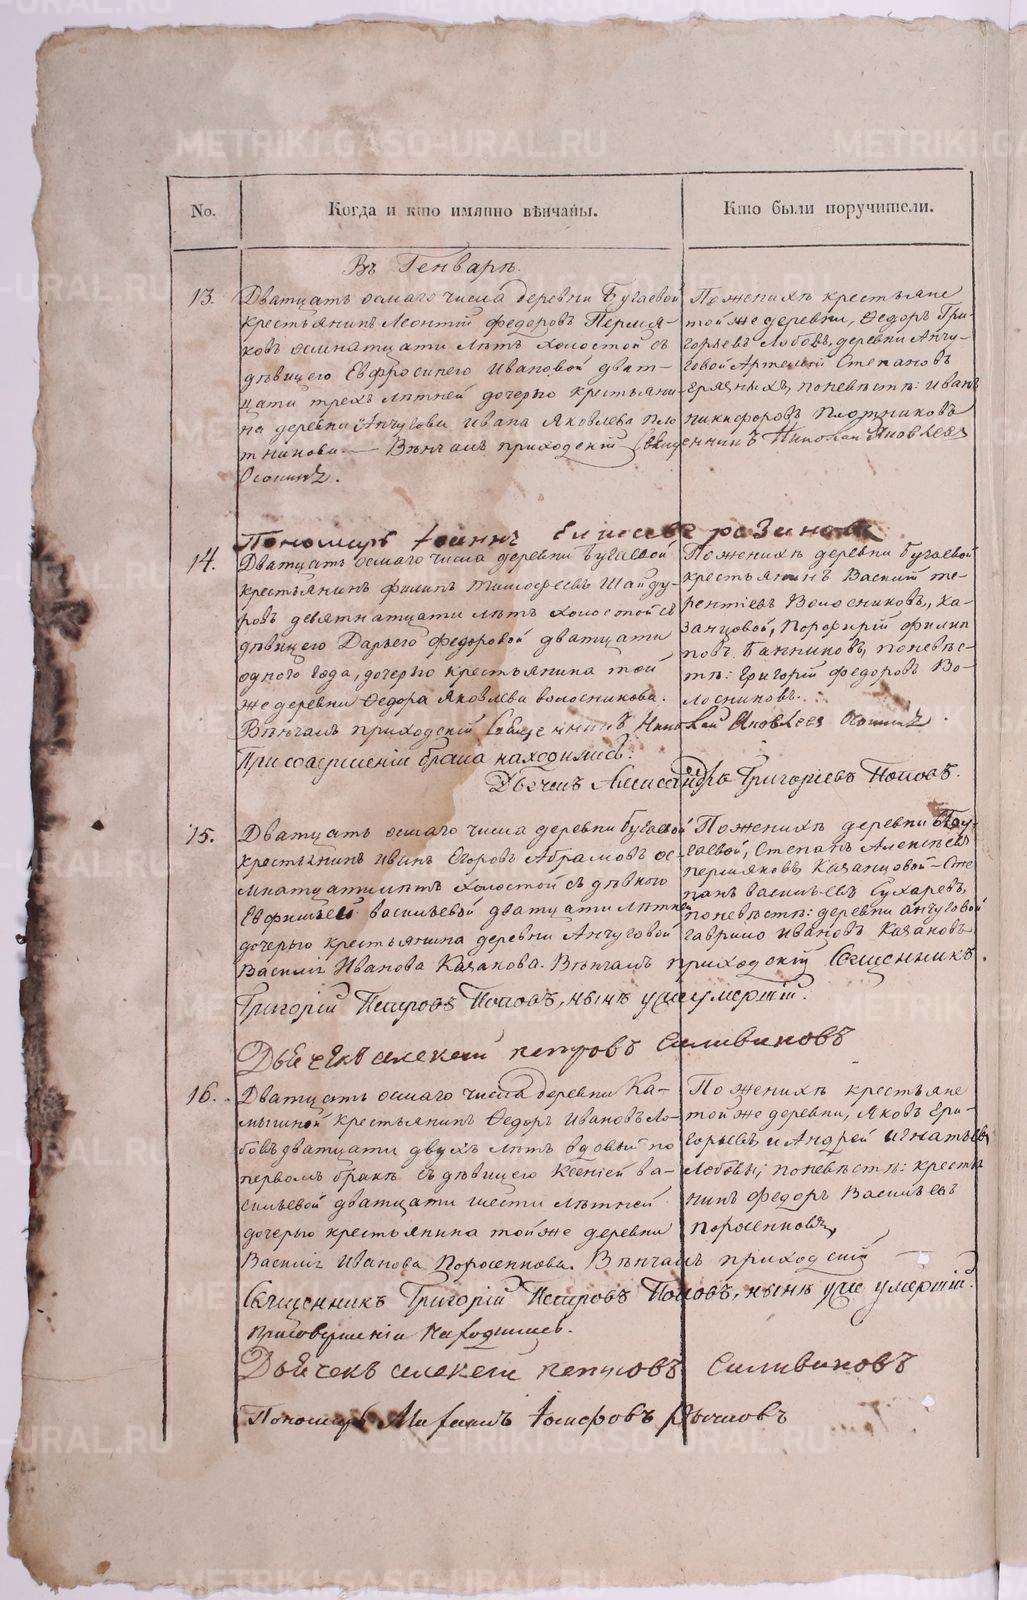 No.
Когда и кто имянно вѣнчаны.
Кто были поручители.
Въ Генварѣ.
13.
Дватцать осмаго числа деревни Бугаевой
крестьянинъ Леонтій федоровъ Пермя-
ковъ осмнатцати лѣтъ холостой съ
дѣвицею Евфросинею Ивановой дват-
цати трехъ лѣтней дочерью крестьяни-
на деревни Анчугови Ивана Яковлева Пло
тникова. — Вѣнчалъ приходскій Священникъ Николай Яковлевъ
Осонинъ.
По женихѣ крестьяне
той же деревни, Ѳедоръ Гри-
горьевъ Лобовъ, деревни Анчу-
говой Артемій Степановъ
по невѣстѣ: Иванъ
никифоровъ Плотниковъ
Пономарь Іоаннъ Елисеевъ розиновъ
14.
Дватцать осмаго числа деревни Бугаевой
крестьянинъ филипъ Тимофеевъ Шайду-
ровъ девятнатцати лѣтъ холостой съ
дѣвицею Дарьею федоровой дватцати
одного года, дочерью крестьянина той
же деревни Ѳедора Яковлева волосникова.
Вѣнчалъ приходскій Священникъ Николай Яковлевъ Осонинъ.
При совершеніи брака находились:
Дьячекъ Александръ Григоріевъ Поповъ.
По женихѣ деревни бугаевой
крестьянинъ Василій те-
рентіевъ Волосниковъ, Ка-
занцовой, Порфирій филип
повъ Банниковъ, по невѣс-
тѣ: Григорій федоровъ Во-
лосниковъ.
15.
Дватцать осмаго числа деревни бугаевой
крестьянинъ иванъ Егоровъ Абрамовъ ос-
мнатцати лѣтъ холостой съ дѣвкою
Евфимьей васильевой дватцати лѣтней
дочерью крестьянина деревни Анчуговой
Василія Иванова Казакова. Вѣнчалъ приходскій Священникъ
Григорій Петровъ Поповъ, нынѣ уже умершій.
По женихѣ деревни Бу-
гаевой, Степанъ Алексѣевъ
пермяковъ, Казанцовой - Сте
панъ васильевъ Сухаревъ,
по невѣстѣ: деревни анчуговой
гаврило ивановъ Казаковъ
Дьячекъ алексей петровъ Силивановъ
16.
Дватцать осмаго числа деревни Ка-
мышной крестьянинъ Ѳедоръ Ивановъ Ло-
бовъ дватцати двухъ лѣтъ вдовый по
первомъ бракѣ съ дѣвицею Ксеніей ва-
сильевой дватцати шести лѣтней
дочерью крестьянина той же деревни
Василія Иванова Поросенкова. Вѣнчалъ приходскій
Священникъ Григорій Петровъ Поповъ, нынѣ уже умершій.
При совершеніи находились.
По женихѣ крестьяне
той же деревни, Яковъ Гри-
горьевъ и Андрей игнатьевъ
Лобовы; по невѣстѣ: кресть
нинъ федоръ Васильевъ
поросенковъ,
Дьячекъ алексей петровъ Силивановъ
Пономарь Михаилъ Іосифовъ